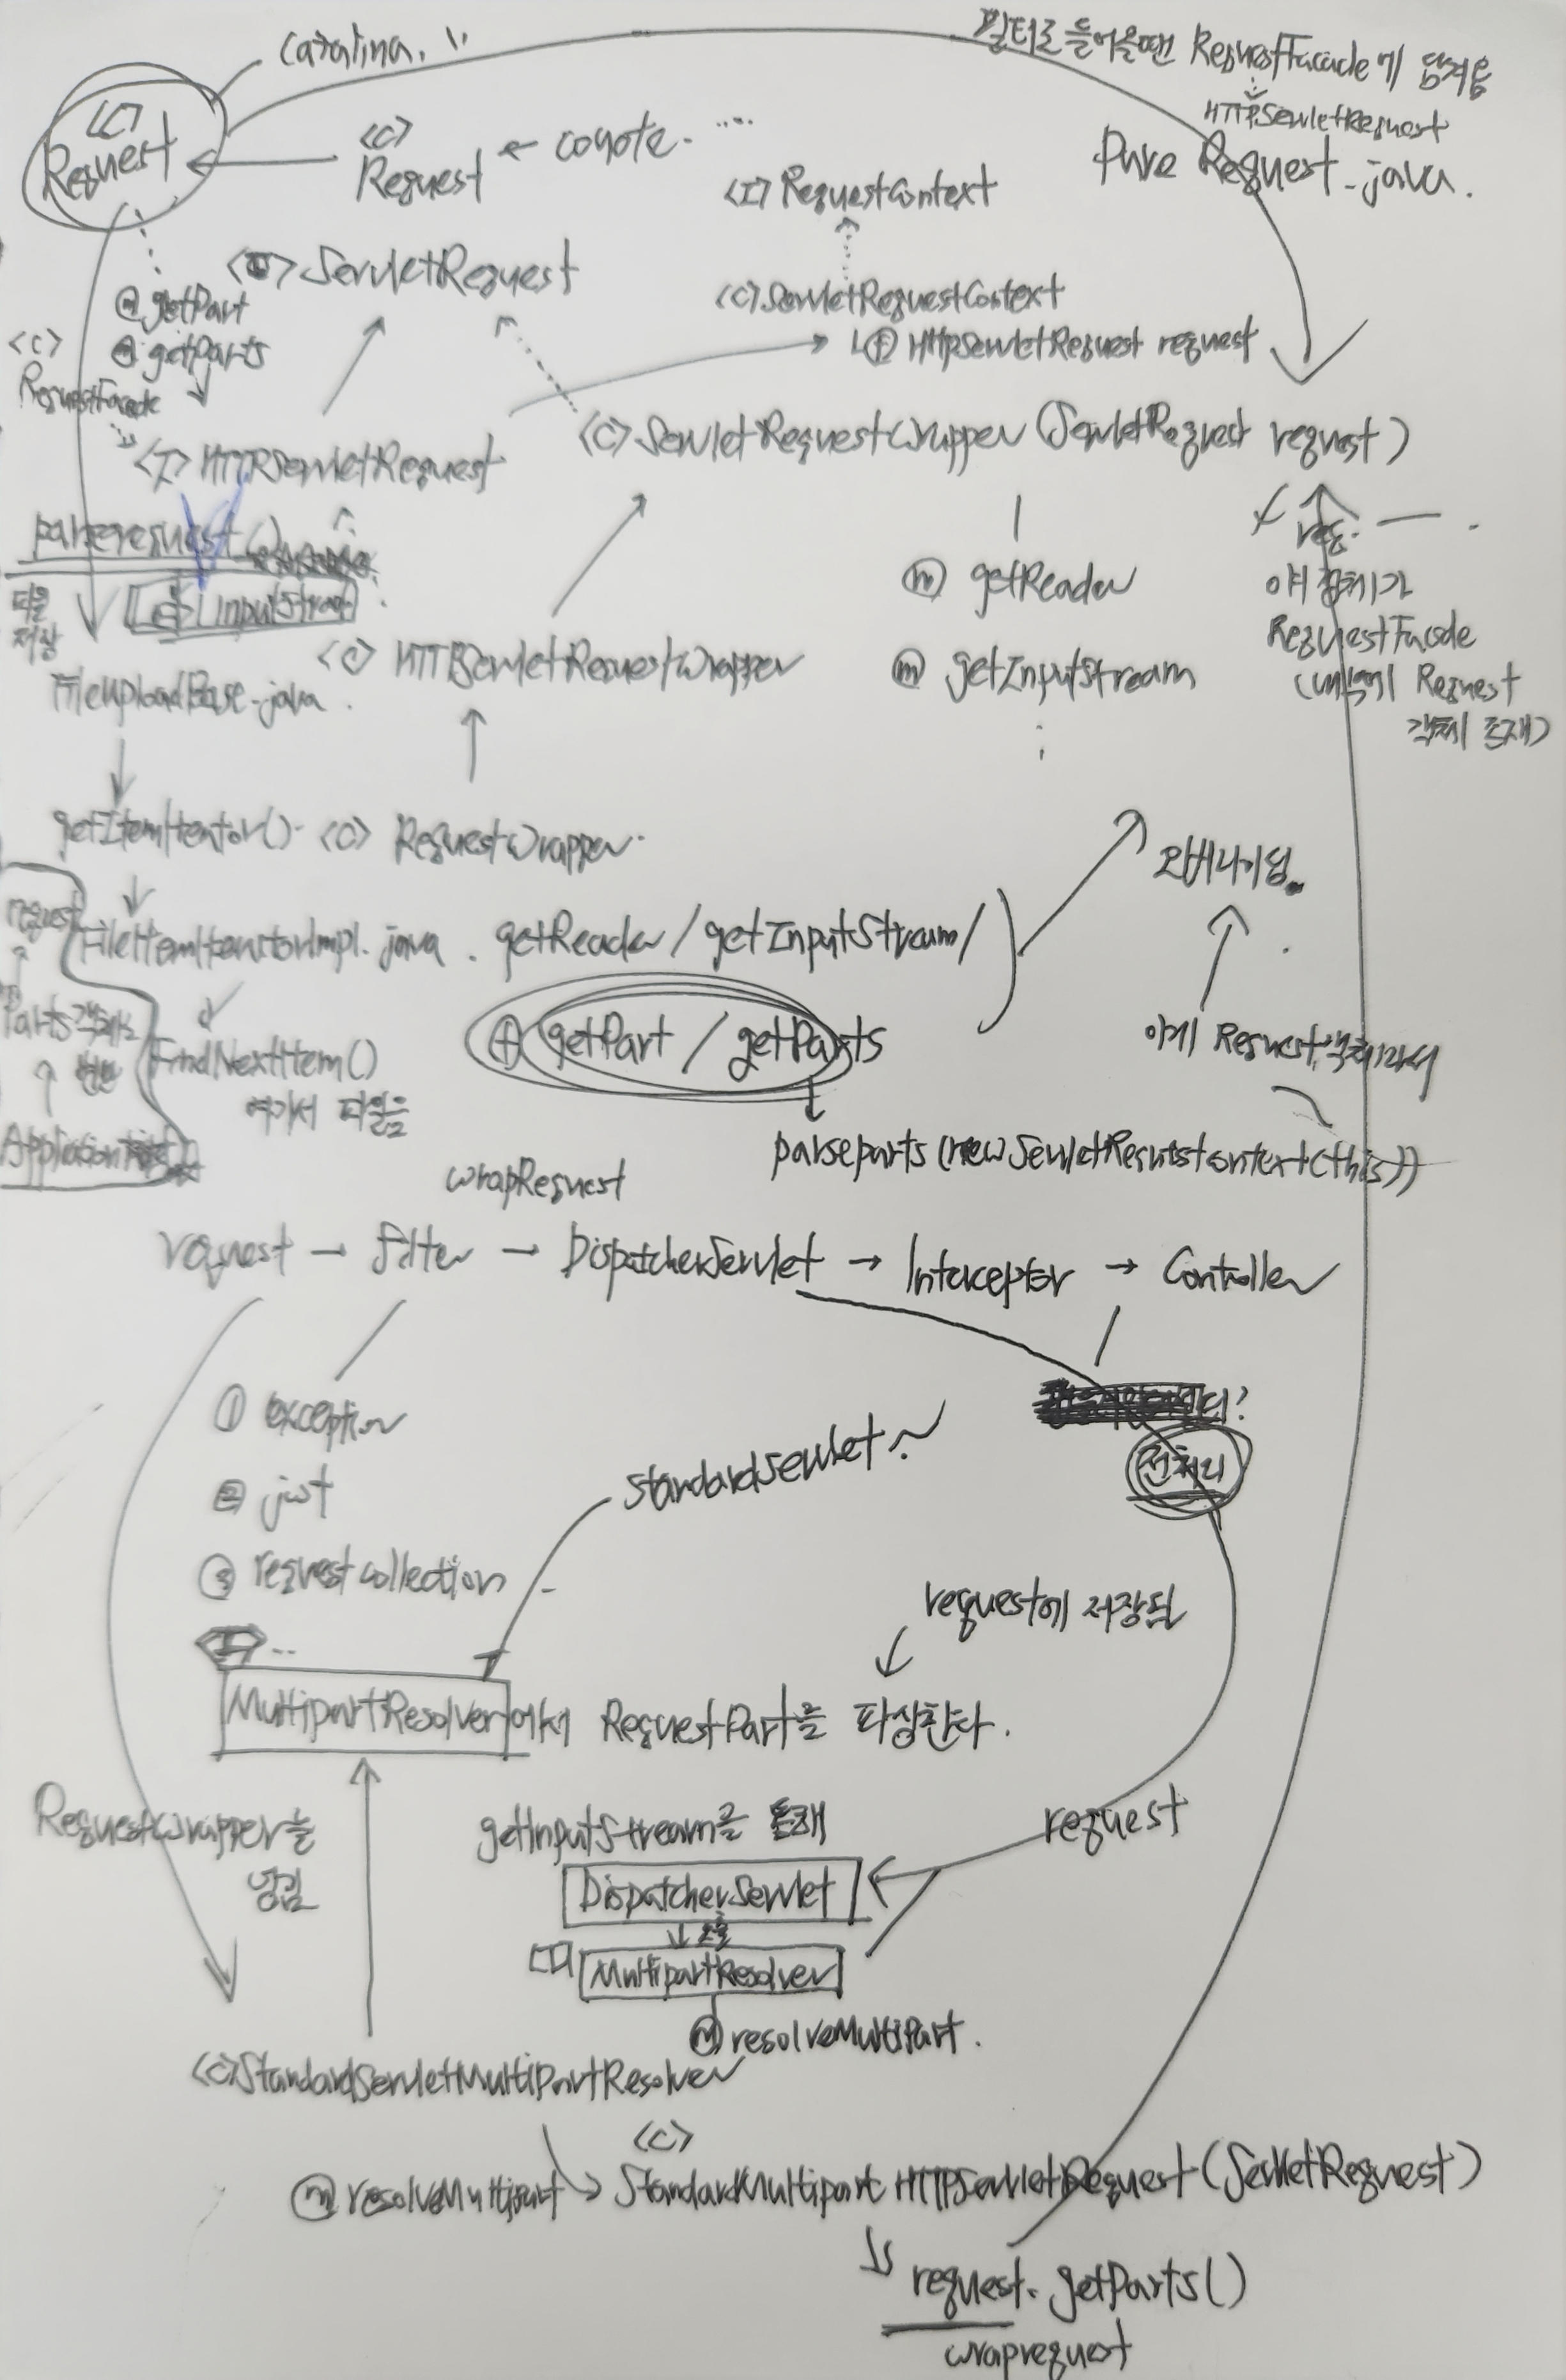 catalina.
필터로 들어올땐 RequestFacade에 담겨옴
HTTPServletRequest
Pure Request.java.
<C>
Request
<C>
Request ← coyote. ...
<I> RequestContext
ServletRequest
<C> ServletRequestContext
Ⓕ HttpServletRequest request
@getPart
@getParts
<C>
RequestFacade
<I> HTTPServletRequest
<C> ServletRequestWrapper (ServletRequest request)
parserequest()
InputStream
파일
저장
ⓜ getReader
req.
얘 집체가
RequestFacade
Request
객체 존재)
<C> HTTPServletRequestWrapper
ⓜ getInputStream
FileUploadBase.java.
getItemIterator()
<C> RequestWrapper
오버라이딩.
request
FileItemIteratorImpl.java.
getReader / getInputStream /
Parts객체로
변환
findNextItem()
여기서 파일을
⊕ getPart / getParts
이게 Request 객체라서
parseparts (new ServletRequestContext(this))
wrapRequest
request → filter → DispatcherServlet → Interceptor → Controller
① exception
② jwt
③ request collection
standardServlet~
전처리
request에 저장된
MultipartResolver에서 RequestPart를 파싱한다.
RequestWrapper를
넘김
getInputStream을 통해
request
DispatcherServlet
MultipartResolver
ⓜ resolveMultiPart.
<C> StandardServletMultiPartResolver
<C>
ⓜ resolveMultipart → StandardMultipartHTTPServletRequest (ServletRequest)
request.getParts()
wraprequest